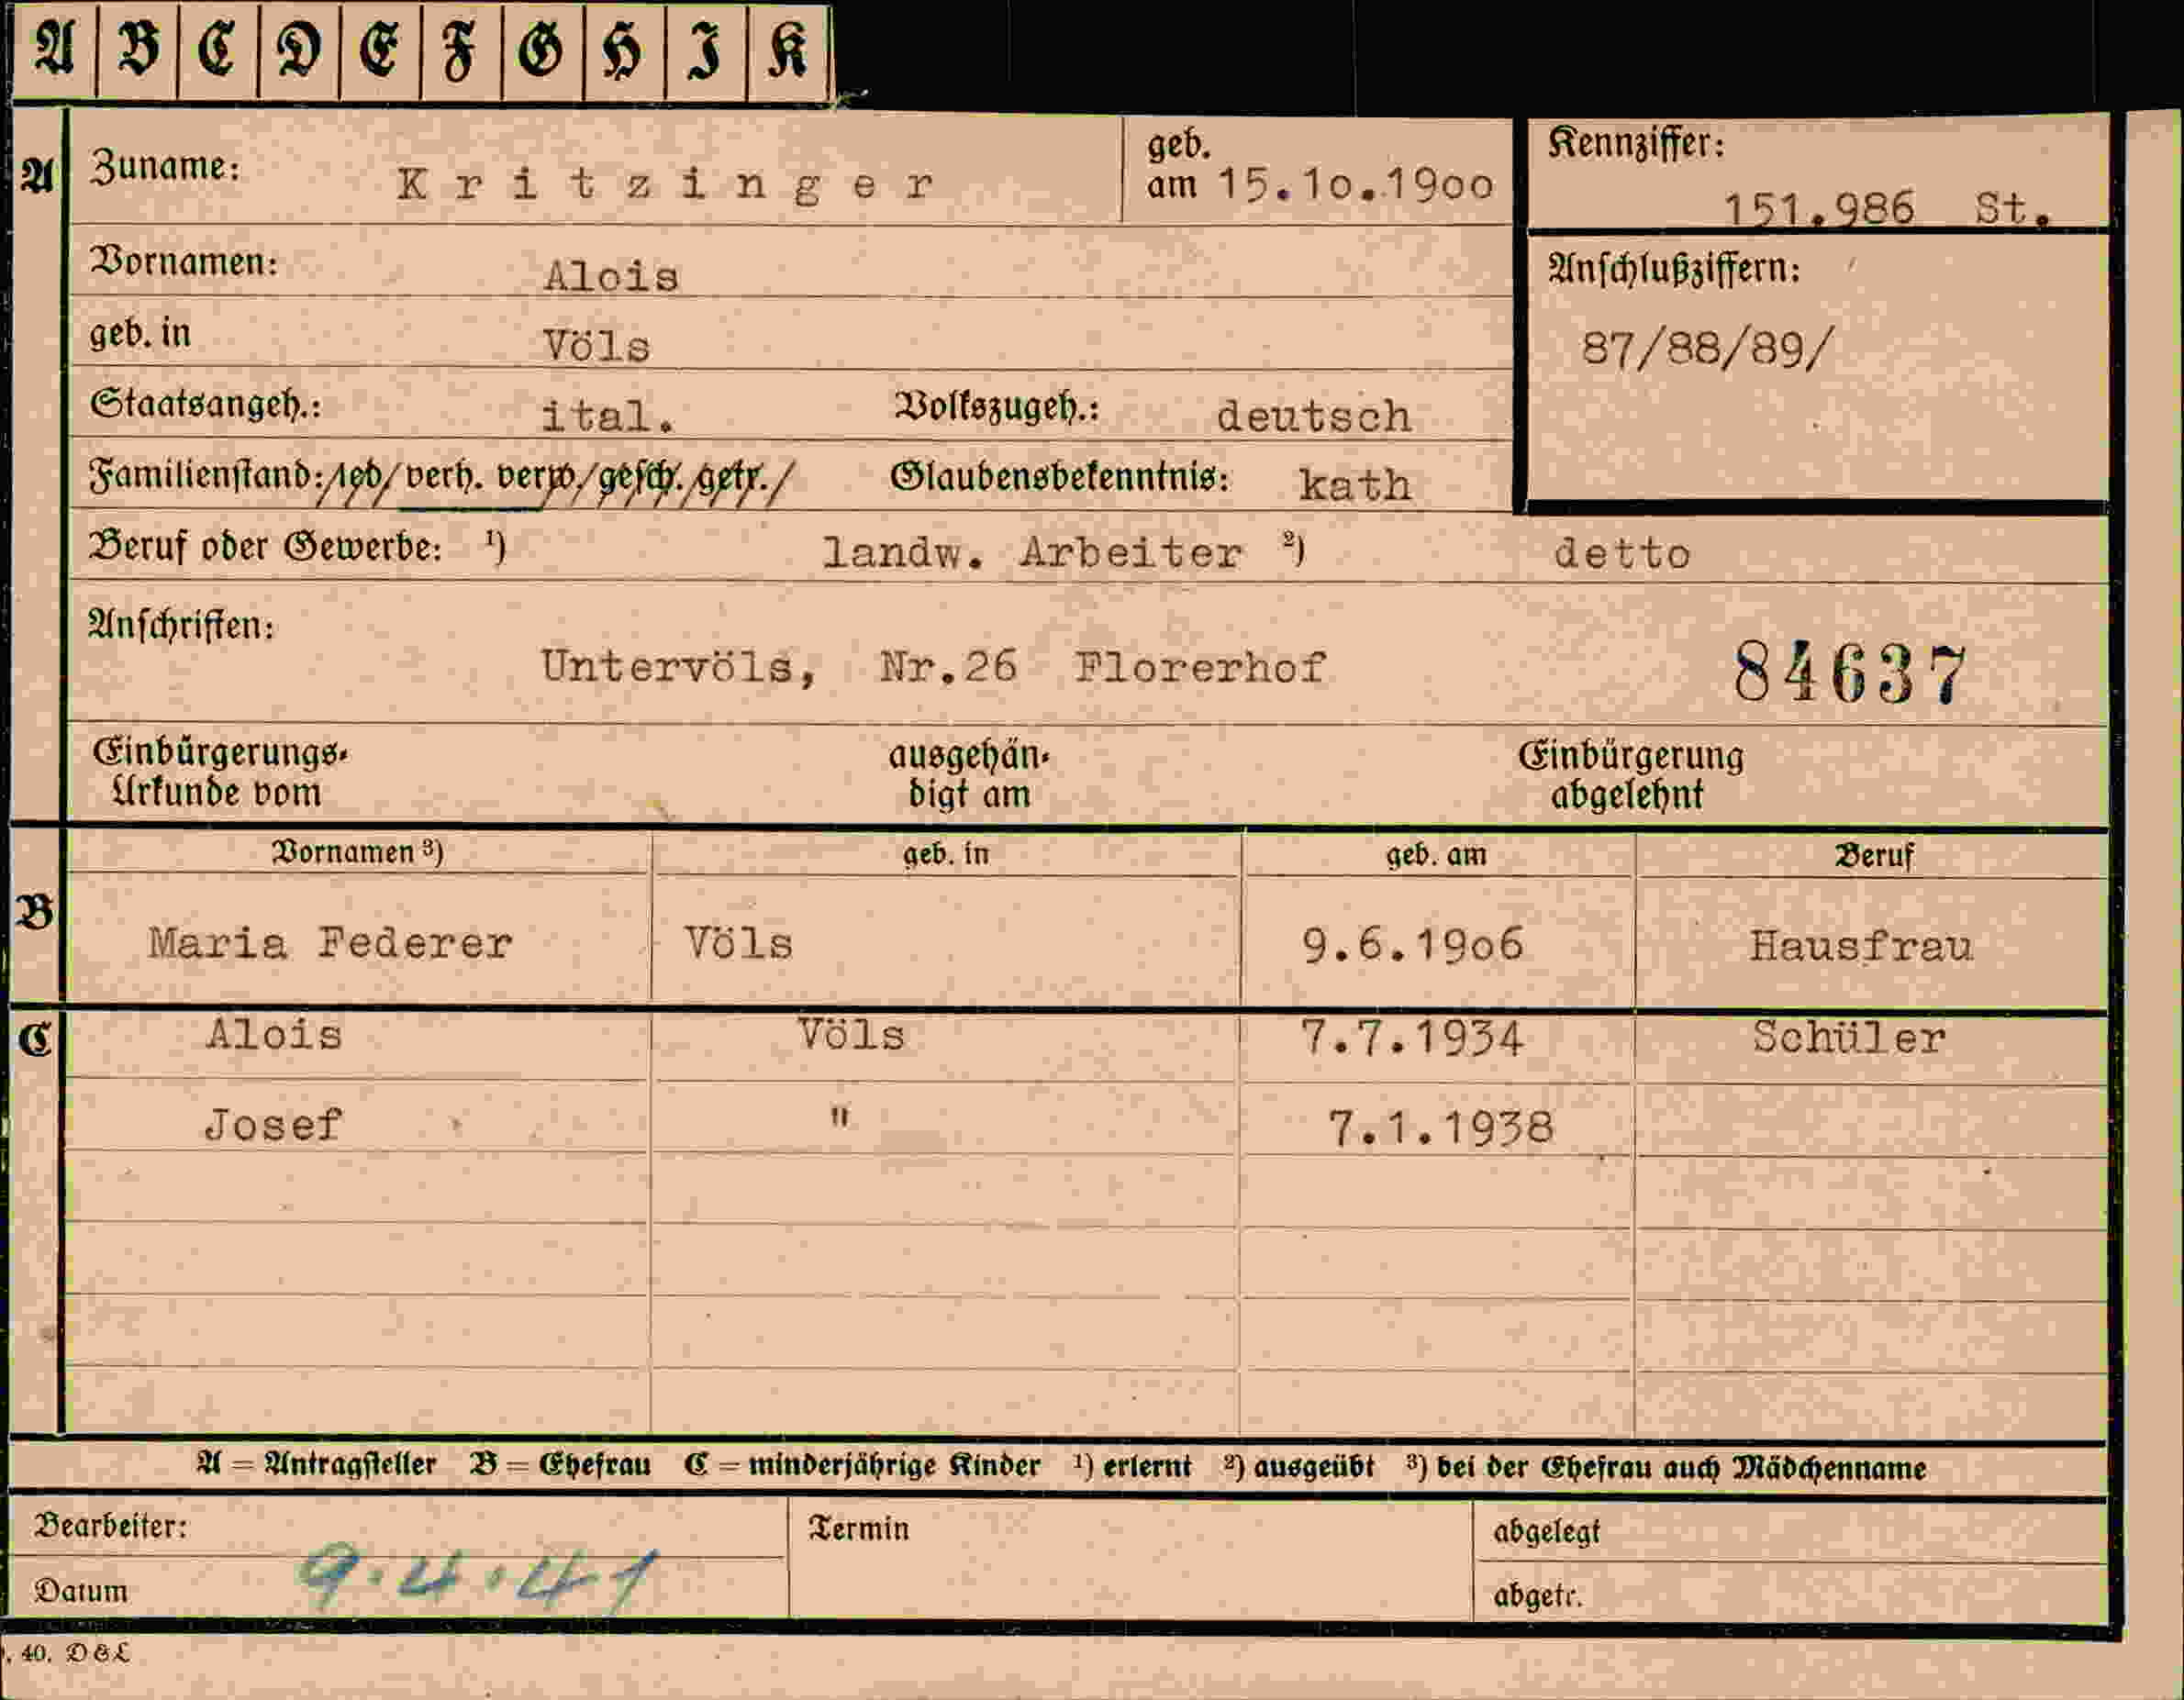 A B C D E F G H I K
A Zuname: Kritzinger geb. am 15.10.1900 Kennziffer: 151.986 St.
Vornamen: Alois Anschlußziffern:
geb. in Völs 87/88/89/
Staatsangeh.: ital. Volkszugeh.: deutsch
Familienstand: led/verh. verw./gesch./getr./ Glaubensbekenntnis: kath
Beruf oder Gewerbe: ¹) landw. Arbeiter ²) detto
Anschriften: Untervöls, Nr.26 Florerhof 84637
Einbürgerungs- ausgehän- Einbürgerung
Urkunde vom digt am abgelehnt
Vornamen ³) geb. in geb. am Beruf
B Maria Federer Völs 9.6.1906 Hausfrau
C Alois Völs 7.7.1934 Schüler
Josef " 7.1.1938
A = Antragsteller B = Ehefrau C = minderjährige Kinder ¹) erlernt ²) ausgeübt ³) bei der Ehefrau auch Mädchenname
Bearbeiter: Termin abgelegt
Datum 9.4.41 abgetr.
. 40. D&L